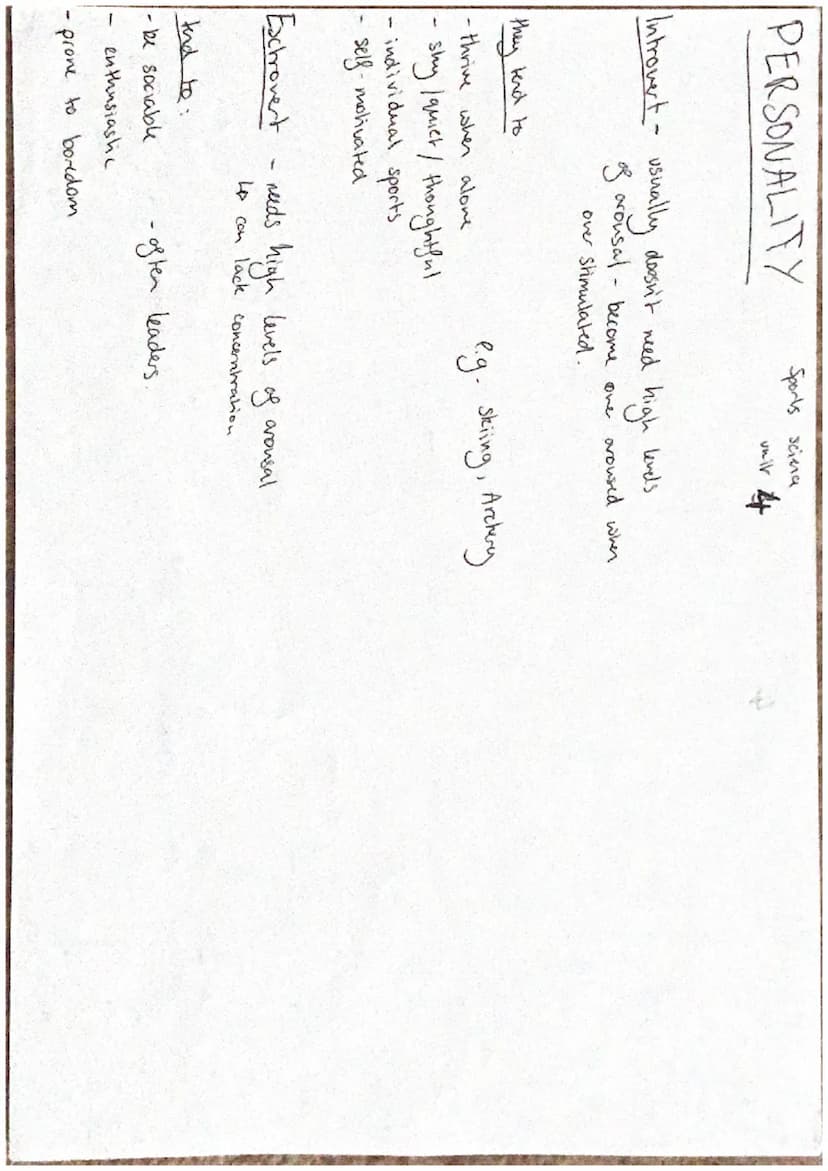 PERSONALITY
Sports science
unit 4
Introvert - usually doesn't need high levels
of arousal - become over aroused when
over stimulated.
they tend to
- thrive when alone
e.g. skiing, Archery
- shy / quiet / thoughtful
- individual sports
- self-motivated
Extrovert - needs high levels of arousal
↳ can lack concentration
tend to:
- be sociable
- often leaders.
- enthusiastic
- prone to boredom